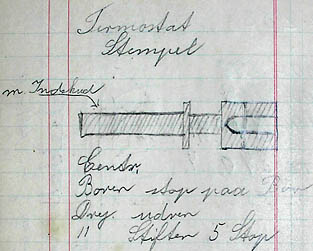 Termostat
Stempel
m. Indskud
Centr.
Boren stop paa
Drej. udven
" Stiften 5 Stop